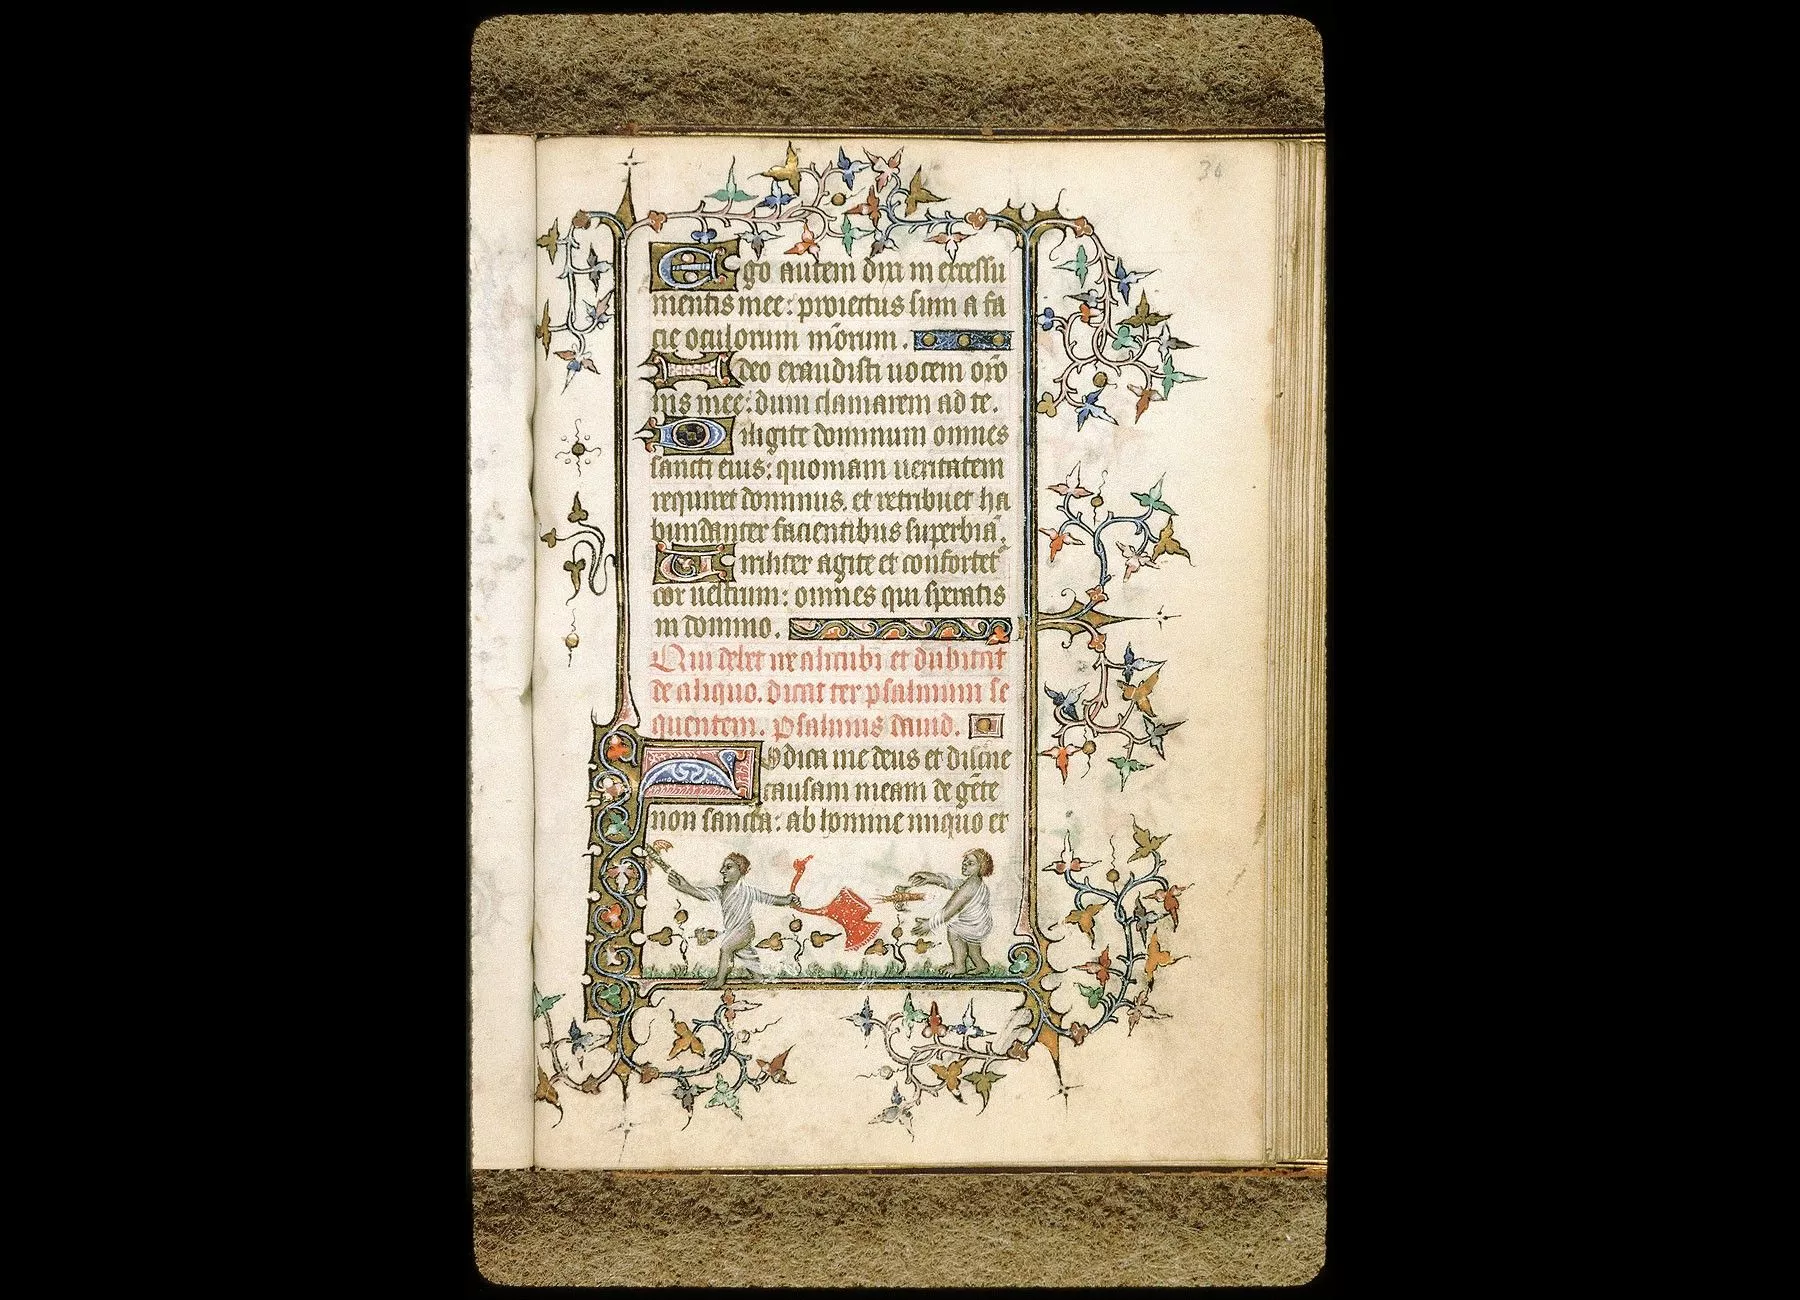 36
Ego autem dixi in excessu
mentis mee: proiectus sum a fa
cie oculorum tuorum.
Ideo exaudisti uocem oro
nis mee: dum clamarem ad te.
Diligite dominum omnes
sancti eius: quoniam ueritatem
requiret dominus. et retribuet ha
bundanter facientibus superbiā.
Uiriliter agite et confortet᷑
cor uestrum: omnes qui speratis
in domino.
Qui debet ire alicubi et dubitat
de aliquo. dicat ter psalmum se
quentem. psalmus dauid.
Iudica me deus et discne
causam meam de gēte
non sancta: ab homine iniquo et